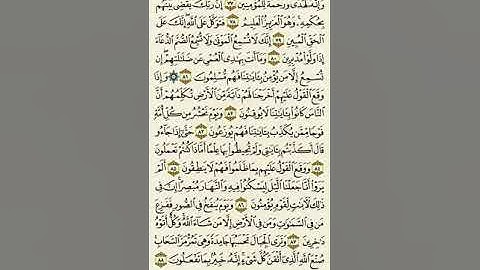 وَإِنَّهُۥ لَهُدًى وَرَحْمَةٌ لِّلْمُؤْمِنِينَ ٧٧ إِنَّ رَبَّكَ يَقْضِى بَيْنَهُم
بِحُكْمِهِۦ وَهُوَ ٱلْعَزِيزُ ٱلْعَلِيمُ ٧٨ فَتَوَكَّلْ عَلَى ٱللَّهِ إِنَّكَ عَلَى
ٱلْحَقِّ ٱلْمُبِينِ ٧٩ إِنَّكَ لَا تُسْمِعُ ٱلْمَوْتَىٰ وَلَا تُسْمِعُ ٱلصُّمَّ ٱلدُّعَآءَ
إِذَا وَلَّوْا۟ مُدْبِرِينَ ٨٠ وَمَآ أَنتَ بِهَٰدِى ٱلْعُمْىِ عَن ضَلَٰلَتِهِمْ إِن
تُسْمِعُ إِلَّا مَن يُؤْمِنُ بِـَٔايَٰتِنَا فَهُم مُّسْلِمُونَ ٨١ ۞ وَإِذَا
وَقَعَ ٱلْقَوْلُ عَلَيْهِمْ أَخْرَجْنَا لَهُمْ دَآبَّةً مِّنَ ٱلْأَرْضِ تُكَلِّمُهُمْ أَنَّ
ٱلنَّاسَ كَانُوا۟ بِـَٔايَٰتِنَا لَا يُوقِنُونَ ٨٢ وَيَوْمَ نَحْشُرُ مِن كُلِّ أُمَّةٍ
فَوْجًا مِّمَّن يُكَذِّبُ بِـَٔايَٰتِنَا فَهُمْ يُوزَعُونَ ٨٣ حَتَّىٰٓ إِذَا جَآءُو
قَالَ أَكَذَّبْتُم بِـَٔايَٰتِى وَلَمْ تُحِيطُوا۟ بِهَا عِلْمًا أَمَّاذَا كُنتُمْ تَعْمَلُونَ
٨٤ وَوَقَعَ ٱلْقَوْلُ عَلَيْهِم بِمَا ظَلَمُوا۟ فَهُمْ لَا يَنطِقُونَ ٨٥ أَلَمْ
يَرَوْا۟ أَنَّا جَعَلْنَا ٱلَّيْلَ لِيَسْكُنُوا۟ فِيهِ وَٱلنَّهَارَ مُبْصِرًا إِنَّ فِى
ذَٰلِكَ لَءَايَٰتٍ لِّقَوْمٍ يُؤْمِنُونَ ٨٦ وَيَوْمَ يُنفَخُ فِى ٱلصُّورِ فَفَزِعَ
مَن فِى ٱلسَّمَٰوَٰتِ وَمَن فِى ٱلْأَرْضِ إِلَّا مَن شَآءَ ٱللَّهُ وَكُلٌّ أَتَوْهُ
دَٰخِرِينَ ٨٧ وَتَرَى ٱلْجِبَالَ تَحْسَبُهَا جَامِدَةً وَهِىَ تَمُرُّ مَرَّ ٱلسَّحَابِ
صُنْعَ ٱللَّهِ ٱلَّذِىٓ أَتْقَنَ كُلَّ شَىْءٍ إِنَّهُۥ خَبِيرٌۢ بِمَا تَفْعَلُونَ ٨٨